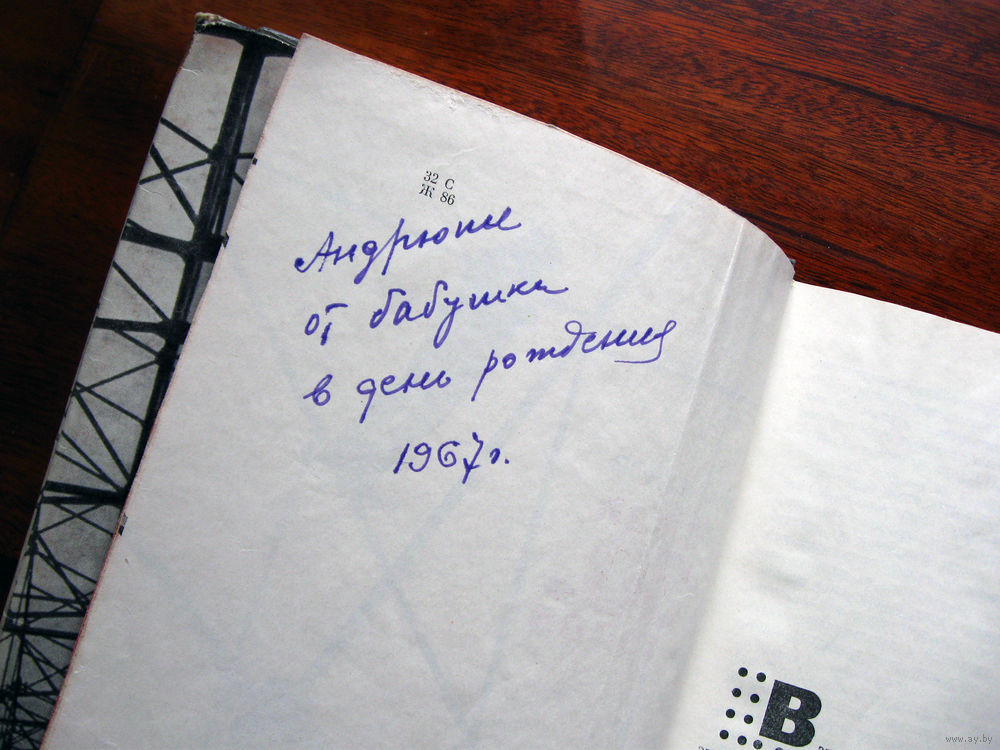 32 С
Ж 86
Андрюше
от бабушки
в день рождения
1967 г.
В
www.ay.by